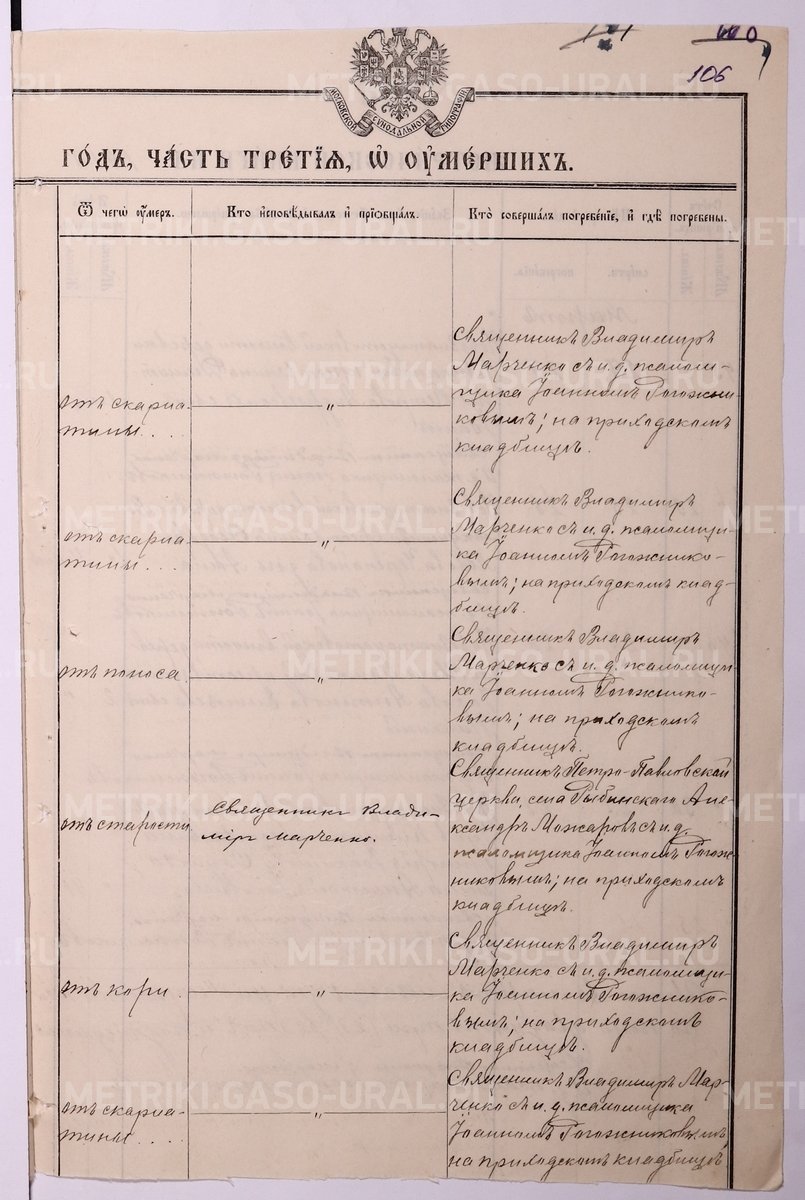 106
МОСКОВСКОЙ СѴНОДАЛЬНОЙ ТИПОГРАФІИ
ГО́ДЪ, ЧА́СТЬ ТРЕ́ТІѦ, Ѡ҆ ОУ҆МЕ́РШИХЪ.
Ѿ чегѡ̀ оу҆́меръ.
Кто̀ и҆сповѣ́дывалъ и҆ прїѡбща́лъ.
Кто̀ соверша́лъ погребе́нїе, и҆ гдѣ̀ погребены̀.
отъ скарла-
тины . . . .
"
Священникъ Владимиръ
Марченко съ и. д. псалом-
щика Іоанномъ Рогожни-
ковымъ; на приходскомъ
кладбищѣ.
отъ скарла-
тины . . . .
"
Священникъ Владимиръ
Марченко съ и. д. псаломщи-
ка Іоанномъ Рогожнико-
вымъ; на приходскомъ клад-
бищѣ.
отъ поноса.
"
Священникъ Владимиръ
Марченко съ и. д. псаломщи-
ка Іоанномъ Рогожнико-
вымъ; на приходскомъ
кладбищѣ.
отъ старости
Священникъ Влади-
міръ Марченко.
Священникъ Петро-Павловской
церкви, села Рыбинскаго Але-
ксандръ Можаровъ съ и. д.
псаломщика Іоанномъ Рогож-
никовымъ; на приходскомъ
кладбищѣ.
отъ кори.
"
Священникъ Владимиръ
Марченко съ и. д. псаломщи-
ка Іоанномъ Рогожнико-
вымъ; на приходскомъ
кладбищѣ.
отъ скарла-
тины . . . .
"
Священникъ Владимиръ Мар-
ченко съ и. д. псаломщика
Іоанномъ Рогожниковымъ,
на приходскомъ кладбищѣ
METRIKI.GASO-URAL.RU